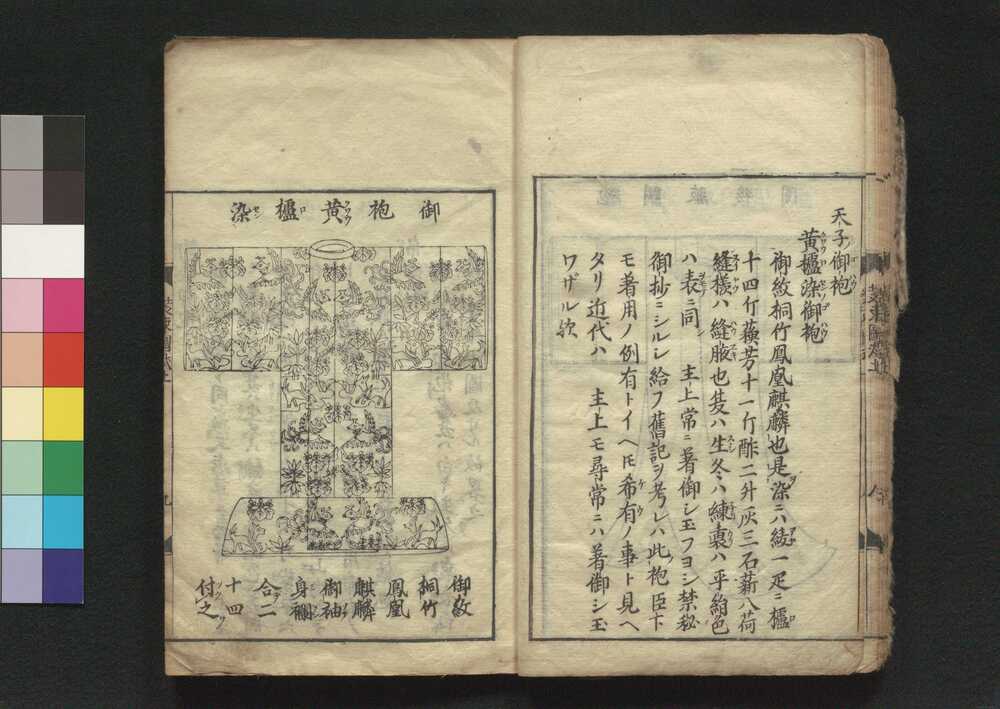 天子御袍
黄櫨染御袍
御紋桐竹鳳凰麒麟也是染ニハ綾一疋ニ櫨
十四斤蘇芳十一斤酢二升灰三石薪八荷
縫様ハ縫腋也夏ハ生冬ハ練裏ハ平絹色
ハ表ニ同 主上常ニ著御シ玉フヨシ禁秘
御抄ニシルシ給フ舊記ヲ考レハ此袍臣下
モ着用ノ例有トイヘ𪜈希有ノ事ト見ヘ
タリ近代ハ 主上モ尋常ニハ著御シ玉
ワザル歟
御袍黄櫨染
御紋
桐竹
鳳凰
麒麟
御袖
身
合二
十四
付之